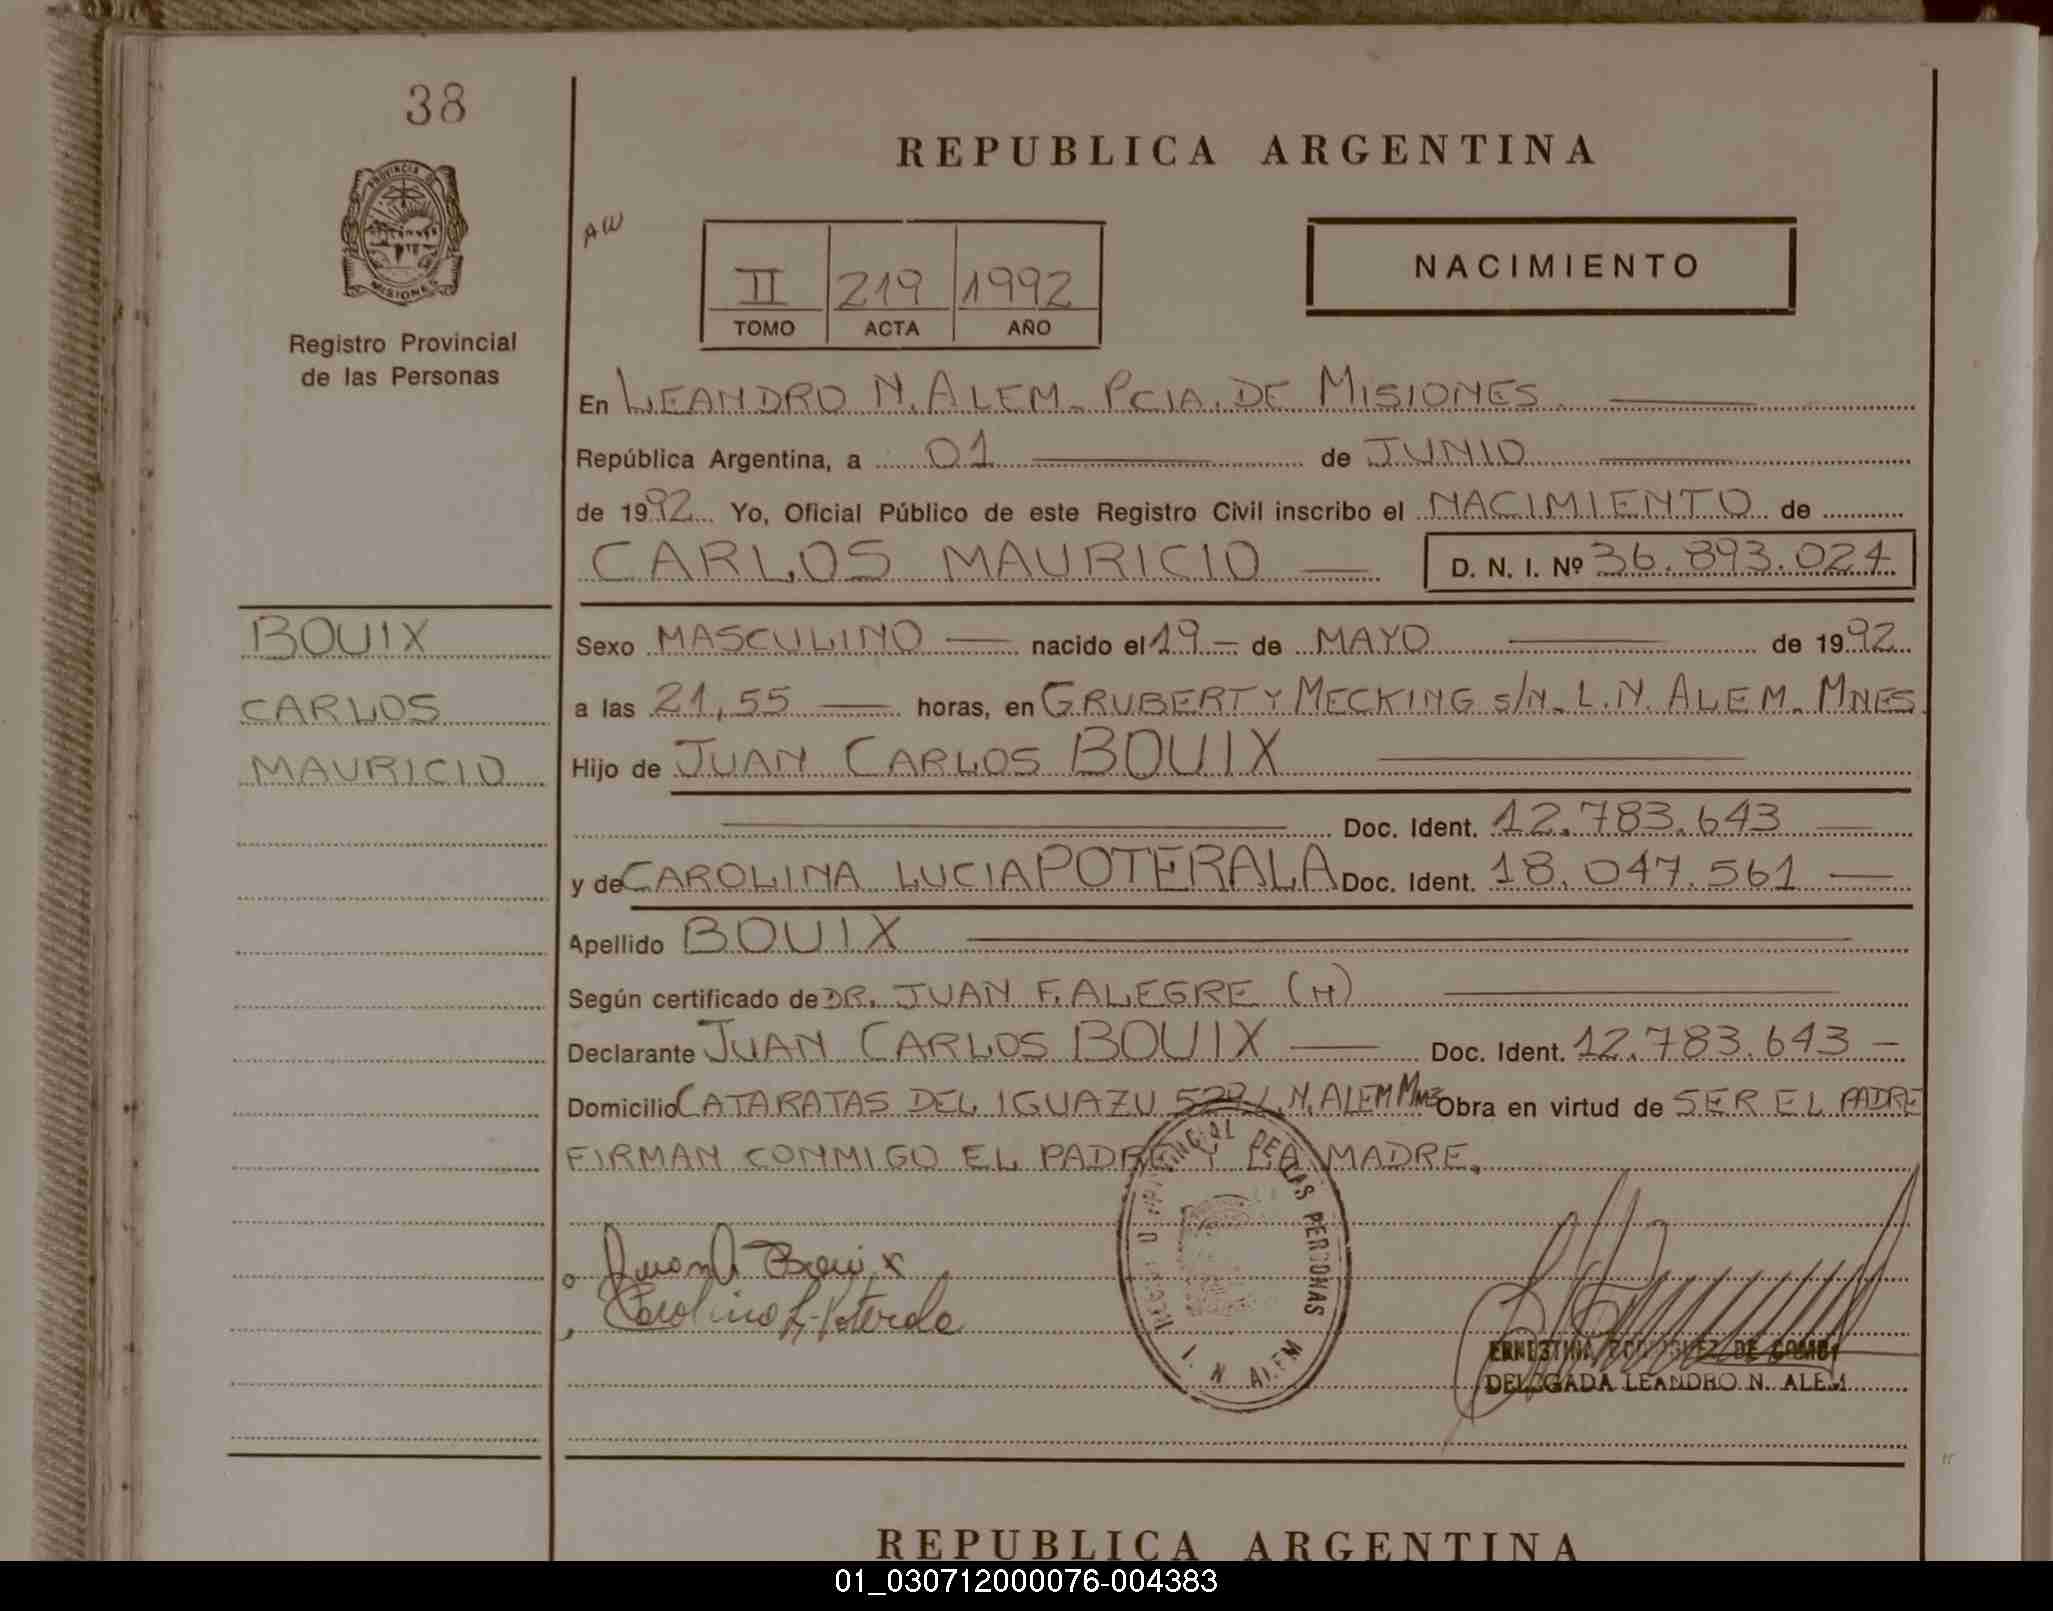 38
REPUBLICA ARGENTINA
PROVINCIA DE
MISIONES
Registro Provincial
de las Personas
AW
II 219 1992
TOMO ACTA AÑO
NACIMIENTO
En LEANDRO N. ALEM - PCIA. DE MISIONES
República Argentina, a 01 de JUNIO
de 1992 Yo, Oficial Público de este Registro Civil inscribo el NACIMIENTO de
CARLOS MAURICIO — D. N. I. Nº 36.893.024
BOUIX
CARLOS
MAURICIO
Sexo MASCULINO — nacido el 19 - de MAYO — de 1992
a las 21,55 — horas, en GRUBERT Y MECKING S/N - L. N. ALEM - MNES.
Hijo de JUAN CARLOS BOUIX
Doc. Ident. 12.783.643 —
y de CAROLINA LUCIA POTERALA Doc. Ident. 18.047.561 —
Apellido BOUIX
Según certificado de DR. JUAN F. ALEGRE (H)
Declarante JUAN CARLOS BOUIX — Doc. Ident. 12.783.643 -
Domicilio CATARATAS DEL IGUAZU L. N. ALEM Obra en virtud de SER EL PADRE
FIRMAN CONMIGO EL PADRE Y LA MADRE.
PROVINCIAL DE LAS PERSONAS
L. N. ALEM
Juan C Bouix
Carolina L. Poterala
ERNESTINA RODRIGUEZ DE
DELEGADA LEANDRO N. ALEM
REPUBLICA ARGENTINA
01_030712000076-004383